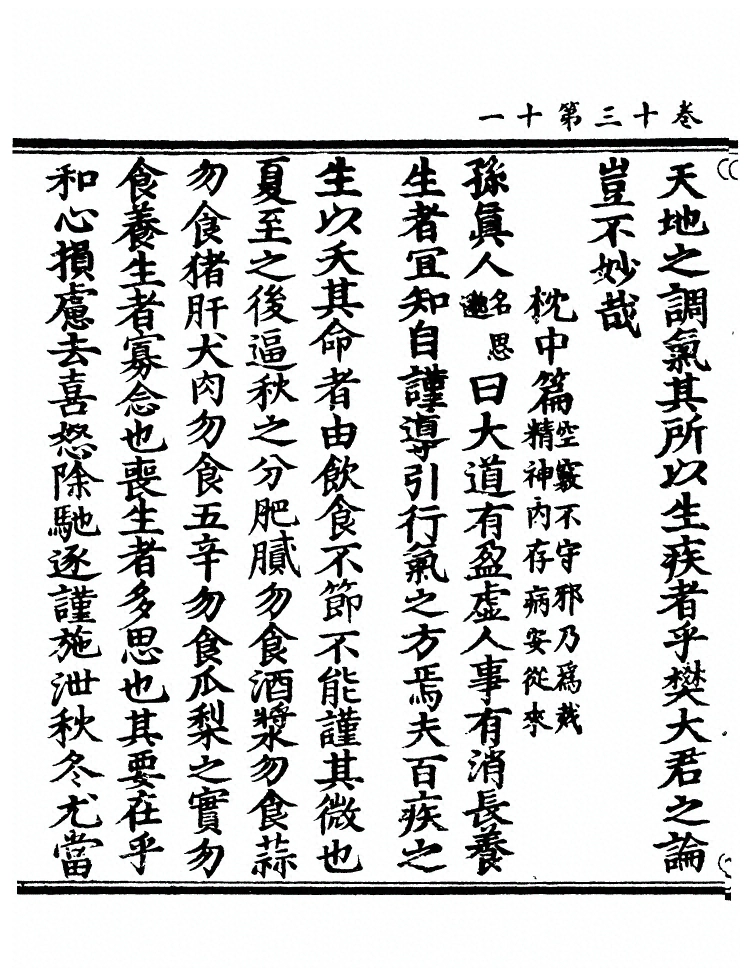 卷十三第十一
天地之調氣其所以生疾者乎樊大君之論
豈不妙哉
枕中篇空竅不守邪乃爲戕精神内存病安從來
孫眞人名思邈曰大道有盈虛人事有消長養
生者宜知自謹導引行氣之方焉夫百疾之
生以夭其命者由飲食不節不能謹其微也
夏至之後逼秋之分肥膩勿食酒漿勿食蒜
勿食猪肝犬肉勿食五辛勿食瓜梨之實勿
食養生者寡念也喪生者多思也其要在乎
和心損慮去喜怒除馳逐謹施泄秋冬尤當